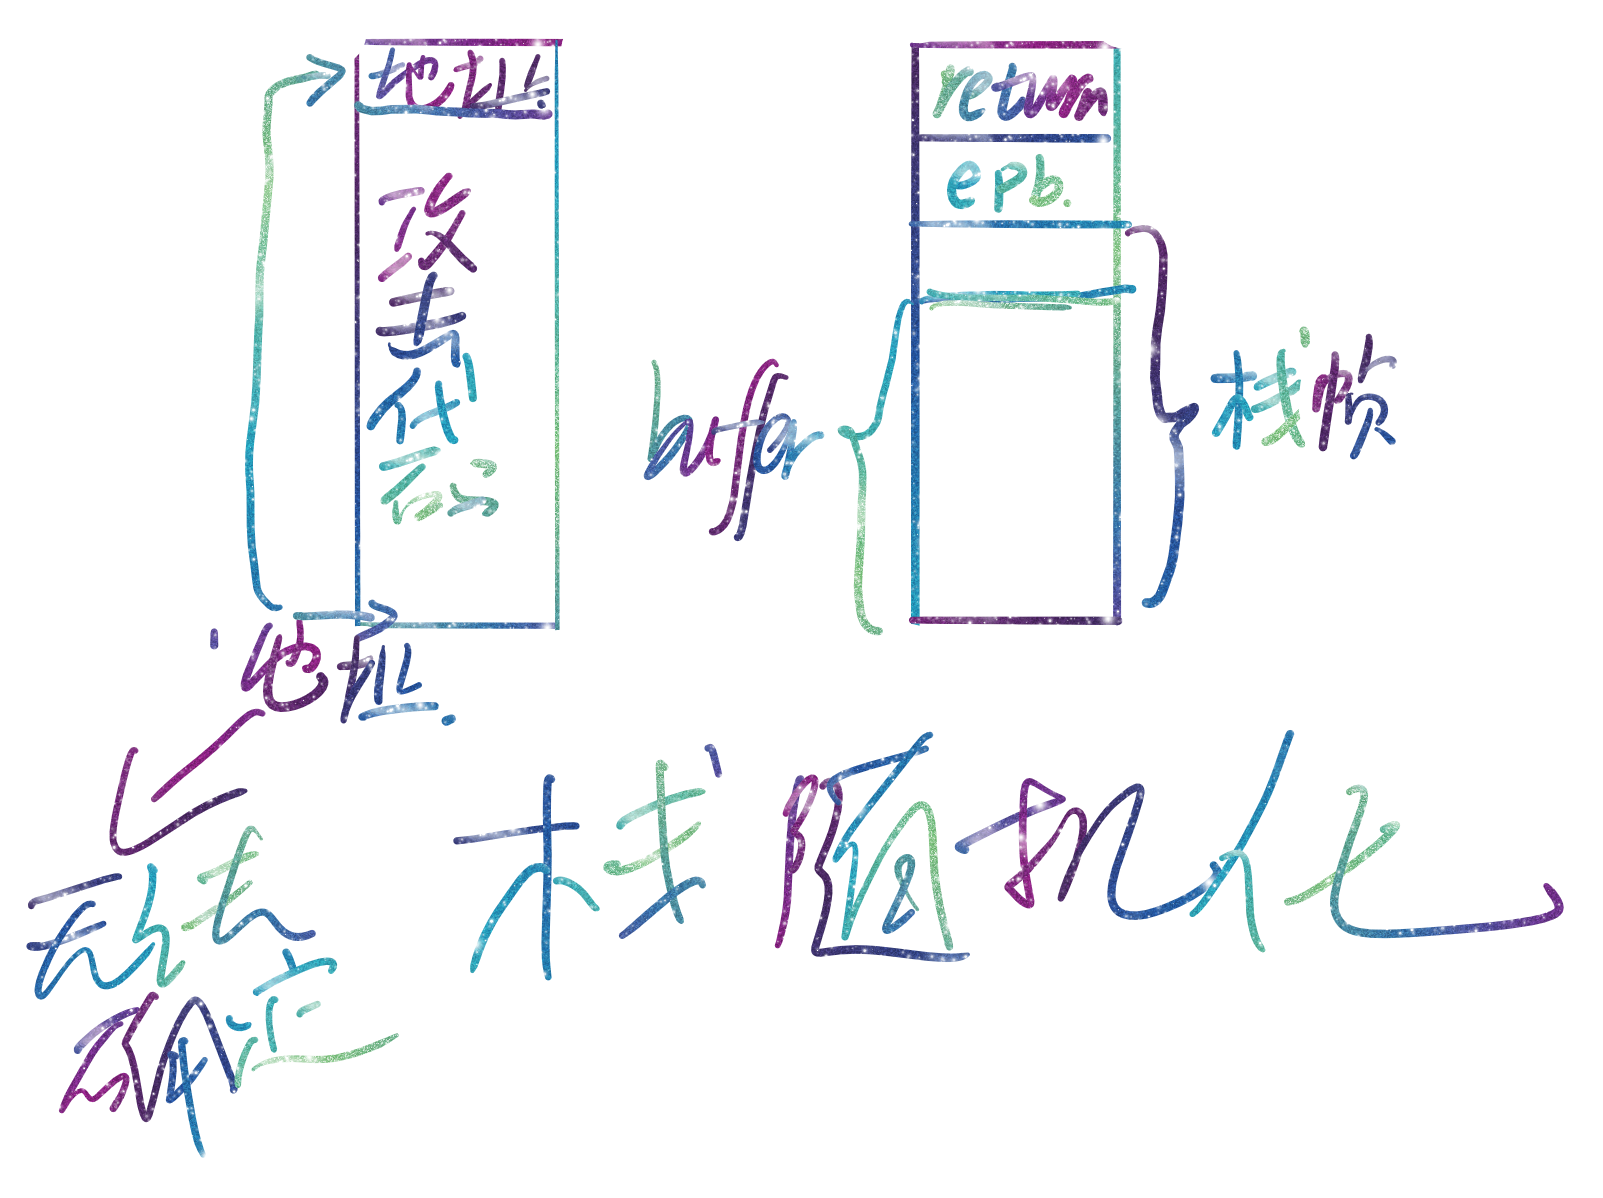 地址.
攻
击
代
码
地址.
无法
确定
return
epb.
buffer
栈帧
栈随机化